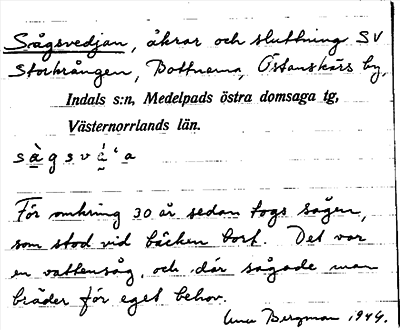 Sågsvedjan, åkrar och sluttning SV
Storkrången, Bottnarna, Östanskärs by,
Indals s:n, Medelpads östra domsaga tg,
Västernorrlands län.
s à g s v
För omkring 30 år sedan togs sågen,
som stod vid bäcken bort. Det var
en vattensåg, och där sågade man
bräder för eget behov.
Bergman 1944.